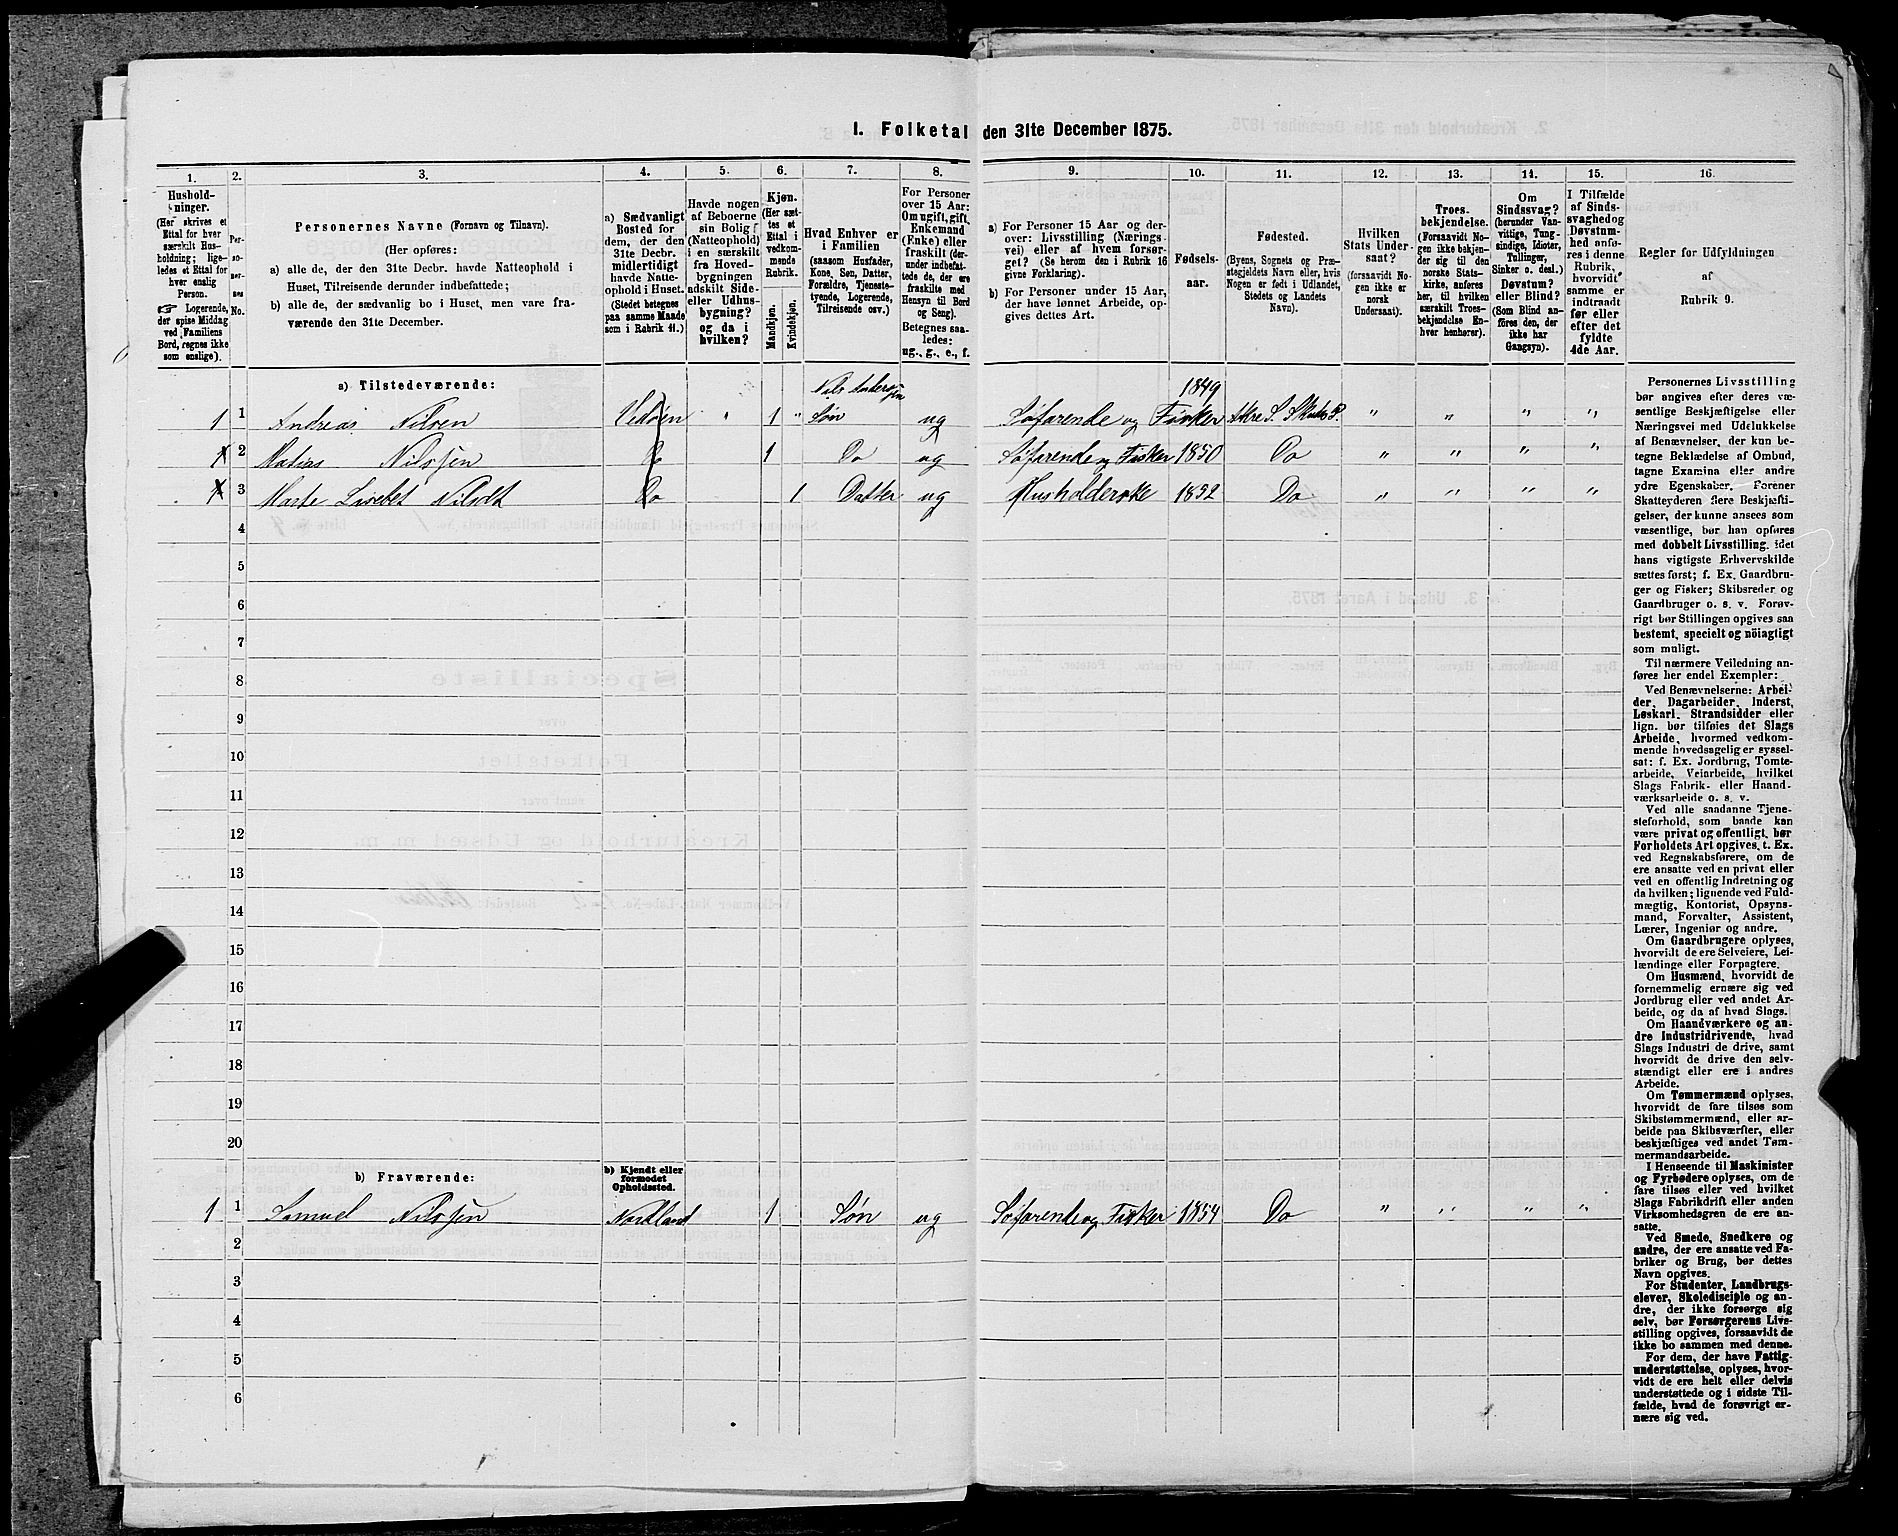 1. Folketal den 31te December 1875.
1.
2.
3.
4.
5.
6.
7.
8.
9.
10.
11.
12.
13.
14.
15.
16.
Hushold-
ninger.
(Her skrives et
Ettal for hver
særskilt Hus-
holdning; lige-
ledes et Ettal for
hver enslig
Person.
☞ Logerende,
der spise Middag
ved Familiens
Bord, regnes ikke
som enslige).
Per-
so-
ner-
nes
No.
Personernes Navne (Fornavn og Tilnavn).
(Her opføres:
a) alle de, der den 31te Decbr. havde Natteophold i
Huset, Tilreisende derunder indbefattede;
b) alle de, der sædvanlig bo i Huset, men vare fra-
værende den 31te December.
a) Sædvanligt
Bosted for
dem, der den
31te Decbr.
midlertidigt
havde Natte-
ophold i Huset.
(Stedet betegnes
paa samme Maade
som i Rubrik 11.)
Havde nogen
af Beboerne
sin Bolig
(Natteophold)
i en særskilt
fra Hoved-
bygningen
adskilt Side-
eller Udhus-
bygning?
og da i
hvilken?
Kjøn.
(Her sæt-
tes et
Ettal i
vedkom-
mende
Rubrik.
Mandkjøn.
Kvindekjøn.
Hvad Enhver er
i Familien
(saasom Husfader,
Kone, Søn, Datter,
Forældre, Tjeneste-
tyende, Logerende,
Tilreisende osv.)
For Personer
over 15 Aar:
Om ugift, gift,
Enkemand
(Enke) eller
fraskilt (der-
under indbefat-
tede de, der ere
fraskilte med
Hensyn til Bord
og Seng).
Betegnes saa-
ledes:
ug., g., e., f.
a) For Personer 15 Aar og der-
over: Livsstilling (Nærings-
vei) eller af hvem forsør-
get? (Se herom den i Rubrik 16
givne Forklaring).
b) For Personer under 15 Aar,
der have lønnet Arbeide, op-
gives dettes Art.
Fødsels-
aar.
Fødested.
(Byens, Sognets og Præ-
stegjeldets Navn eller, hvis
Nogen er født i Udlandet,
Stedets og Landets
Navn).
Hvilken
Stats Under-
saat?
(forsaavidt No-
gen ikke er
norsk
Undersaat).
Troes-
bekjendelse.
(Forsaavidt No-
gen ikke bekjen-
der sig til den
norske Stats-
kirke, anføres
her, til hvilken
særskilt Troes-
bekjendelse En-
hver henhører).
Om
Sindssvag?
(herunder Van-
vittige, Tung-
sindige, Idioter,
Tullinger,
Sinker o. desl.)
Døvstum?
eller Blind?
(Som Blind an-
føres den, der
ikke har
Gangsyn).
I Tilfælde
af Sinds-
svaghed og
Døvstum-
hed anfø-
res i denne
Rubrik,
hvorvidt
samme er
indtraadt
før eller
efter det
fyldte
4de Aar.
Regler for Udfyldningen
af
Rubrik 9.
a) Tilstedeværende:
Nils Anders-
sen
1849
1 1 Andreas Nilsen Vedøen " 1 " Søn ug Søfarende og Fisker Akre S. Skude P. " " " "
2 Matias Nilssen Do 1 Do ug Søfarende og Fisker 1850 Do " " " "
3 Marte Lisebet Nilsdt Do 1 Datter ug Husholderske 1852 Do " " " "
4
5
6
7
8
9
10
11
12
13
14
15
16
17
18
19
20
b) Fraværende:
b) Kjendt eller
formodet
Opholdssted.
1 1 Samuel Nilssen Nordland 1 Søn ug Søfarende og Fisker 1854 Do " " " "
2
3
4
5
6
Personernes Livsstilling
bør angives efter deres væ-
sentlige Beskjæftigelse eller
Næringsvei med Udelukkelse
af Benævnelser, der kun be-
tegne Beklædelse af Ombud,
tagne Examina eller andre
ydre Egenskaber. Forener
Skatteyderen flere Beskjæfti-
gelser, der kunne ansees som
væsentlige, bør han opføres
med dobbelt Livsstilling, idet
hans vigtigste Erhvervskilde
sættes først; f. Ex. Gaardbru-
ger og Fisker; Skibsreder og
Gaardbruger o. s. v. Forøv-
rigt bør Stillingen opgives saa
bestemt, specielt og nöiagtigt
som muligt.
Til nærmere Veiledning an-
føres her endel Exempler:
Ved Benævnelserne: Arbei-
der, Dagarbeider, Inderst,
Løskarl, Strandsidder eller
lign. bør tilføies det Slags
Arbeide, hvormed vedkom-
mende hovedsagelig er syssel-
sat: f. Ex. Jordbrug, Tomte-
arbeide, Veiarbeide, hvilket
Slags Fabrik- eller Haand-
værksarbeide o. s. v.
Ved alle saadanne Tjene-
steforhold, som baade kan
være privat og offentligt, bør
Forholdets Art opgives, t. Ex.
ved Regnskabsførere, om de
ere ansatte ved en privat eller
ved en offentlig Indretning og
da hvilken; lignende ved Fuld-
mægtig, Kontorist, Opsyns-
mand, Forvalter, Assistent,
Lærer, Ingeniør og andre.
Om Gaardbrugere oplyses,
hvorvidt de ere Selveiere, Lei-
lændinge eller Forpagtere.
Om Husmænd, hvorvidt de
fornemmelig ernære sig ved
Jordbrug eller ved andet Ar-
beide, og da af hvad Slags.
Om Haandværkere og an-
dre Industridrivende, hvad
Slags Industri de drive, samt
hvorvidt de drive den selv-
stændigt eller ere i andres
Arbeide.
Om Tømmermænd oplyses,
hvorvidt de fare tilsøs som
Skibstømmermænd, eller ar-
beide paa Skibsværfter, eller
beskjæftiges ved andet Tøm-
mermandsarbeide.
I Henseende til Maskinister
og Fyrbødere oplyses, om de
fare tilsøs eller ved hvilket
Slags Fabrikdrift eller anden
Virksomhedsgren de ere an-
satte.
Ved Smede, Snedkere og
andre, der ere ansatte ved Fa-
briker og Brug, bør dettes
Navn opgives.
For Studenter, Landbrugs-
elever, Skoledisciple og an-
dre, der ikke forsørge sig
selv, bør Forsørgerens Livs-
stilling opgives, forsaavidt de
ikke bo sammen med denne.
For dem, der have Fattig-
understøttelse, oplyses, hvor-
vidt de ere helt eller delvis
understøttede og i sidste Til-
fælde, hvad de forøvrigt er-
nære sig ved.